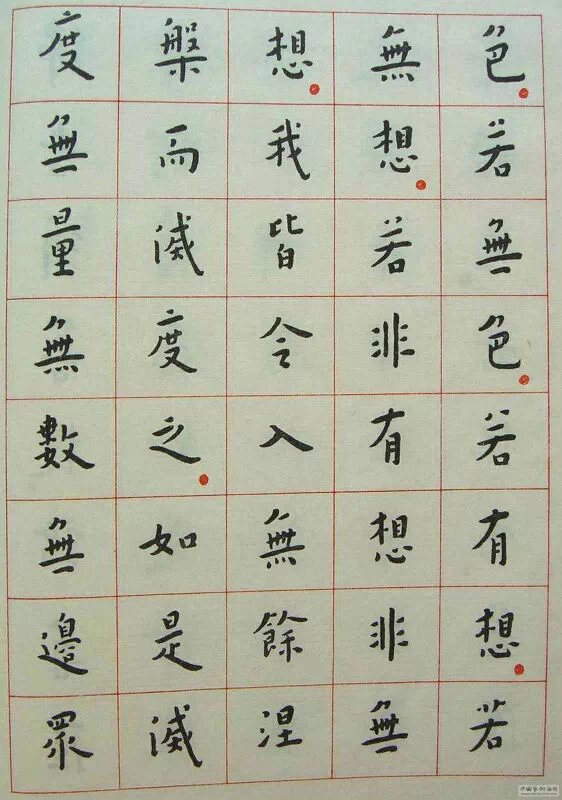 色。若無色。若有想。若
無想。若非有想非無
想。我皆令入無餘涅
槃而滅度之。如是滅
度無量無數無邊眾